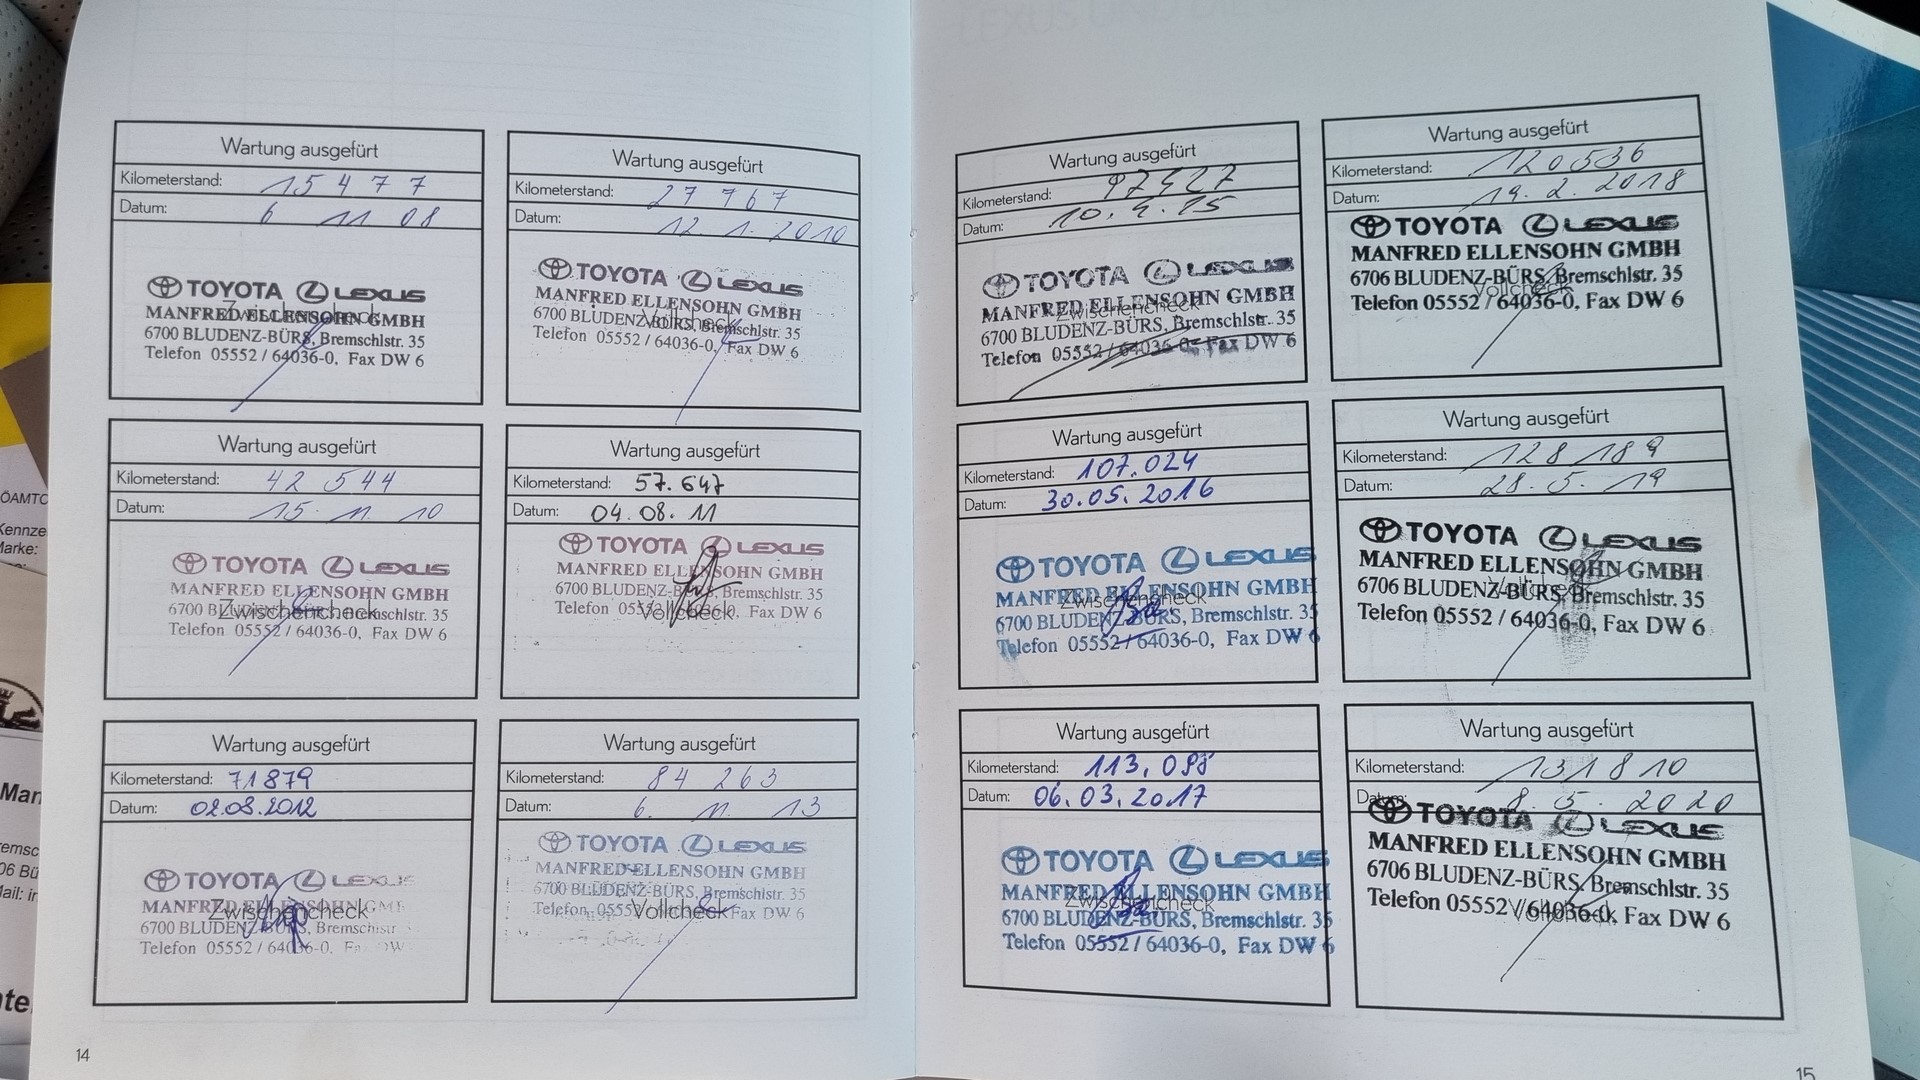 Wartung ausgefürt
Kilometerstand: 15477
Datum: 6 11 08
TOYOTA LEXUS
Zwischencheck
MANFRED ELLENSOHN GMBH
6700 BLUDENZ-BÜRS, Bremschlstr. 35
Telefon 05552 / 64036-0, Fax DW 6
Wartung ausgefürt
Kilometerstand: 27767
Datum: 12. 1. 2010
TOYOTA LEXUS
MANFRED ELLENSOHN GMBH
Vollcheck
6700 BLUDENZ-BÜRS, Bremschlstr. 35
Telefon 05552 / 64036-0, Fax DW 6
Wartung ausgefürt
Kilometerstand: 42 544
Datum: 15. 11. 10
TOYOTA LEXUS
MANFRED ELLENSOHN GMBH
6700 BLUDENZ-BÜRS, Bremschlstr. 35
Zwischencheck
Telefon 05552 / 64036-0, Fax DW 6
Wartung ausgefürt
Kilometerstand: 57.647
Datum: 04. 08. 11
TOYOTA LEXUS
MANFRED ELLENSOHN GMBH
6700 BLUDENZ-BÜRS, Bremschlstr. 35
Telefon 05552 / 64036-0, Fax DW 6
Vollcheck
Wartung ausgefürt
Kilometerstand: 71879
Datum: 02.08.2012
TOYOTA LEXUS
MANFRED ELLENSOHN GMB
Zwischencheck
6700 BLUDENZ-BÜRS, Bremschlstr
Telefon 05552 / 64036-0, Fa DW
Wartung ausgefürt
Kilometerstand: 84 263
Datum: 6. 11. 13
TOYOTA LEXUS
MANFRED ELLENSOHN GMBH
6700 BLUDENZ-BÜRS, Bremschlstr. 35
Telefon 05552 Fax DW 6
Vollcheck
14
Wartung ausgefürt
Kilometerstand: 97427
Datum: 10. 4. 15
TOYOTA LEXUS
MANFRED ELLENSOHN GMBH
Zwischencheck
6700 BLUDENZ-BÜRS, Bremschlstr. 35
Telefon 05552 / 64036-0, Fax DW 6
Wartung ausgefürt
Kilometerstand: 120536
Datum: 19. 2. 2018
TOYOTA LEXUS
MANFRED ELLENSOHN GMBH
6706 BLUDENZ-BÜRS, Bremschlstr. 35
Vollcheck
Telefon 05552 / 64036-0, Fax DW 6
Wartung ausgefürt
Kilometerstand: 107.024
Datum: 30.05.2016
TOYOTA LEXUS
MANFRED ELLENSOHN GMBH
Zwischencheck
6700 BLUDENZ-BÜRS, Bremschlstr. 35
Telefon 05552 / 64036-0, Fax DW 6
Wartung ausgefürt
Kilometerstand: 128 189
Datum: 28. 5. 19
TOYOTA LEXUS
MANFRED ELLENSOHN GMBH
6706 BLUDENZ-BÜRS, Bremschlstr. 35
Vollcheck
Telefon 05552 / 64036-0, Fax DW 6
Wartung ausgefürt
Kilometerstand: 113,088
Datum: 06.03.2017
TOYOTA LEXUS
MANFRED ELLENSOHN GMBH
Zwischencheck
6700 BLUDENZ-BÜRS, Bremschlstr. 35
Telefon 05552 / 64036-0, Fax DW 6
Wartung ausgefürt
Kilometerstand: 131810
Datum: 8. 5. 2020
TOYOTA LEXUS
MANFRED ELLENSOHN GMBH
6706 BLUDENZ-BÜRS, Bremschlstr. 35
Telefon 05552 / 64036-0, Fax DW 6
Vollcheck
15
ÖAMTC
Kennze
Marke:
Man